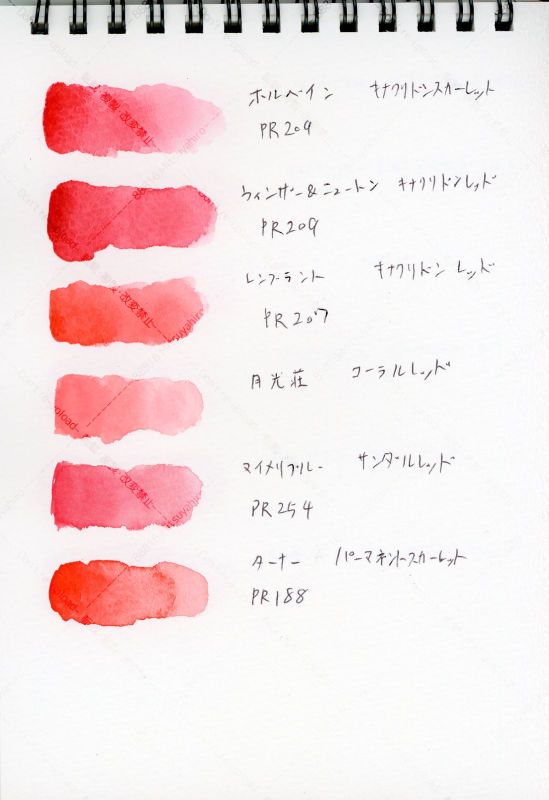 ホルベイン キナクリドンスカーレット
PR209
ウィンザー&ニュートン キナクリドンレッド
PR209
レンブラント キナクリドン レッド
PR207
月光荘 コーラルレッド
マイメリブルー サンダルレッド
PR254
ターナー パーマネントスカーレット
PR188
複製・改変禁止
改変禁止
改変禁止
改変禁止